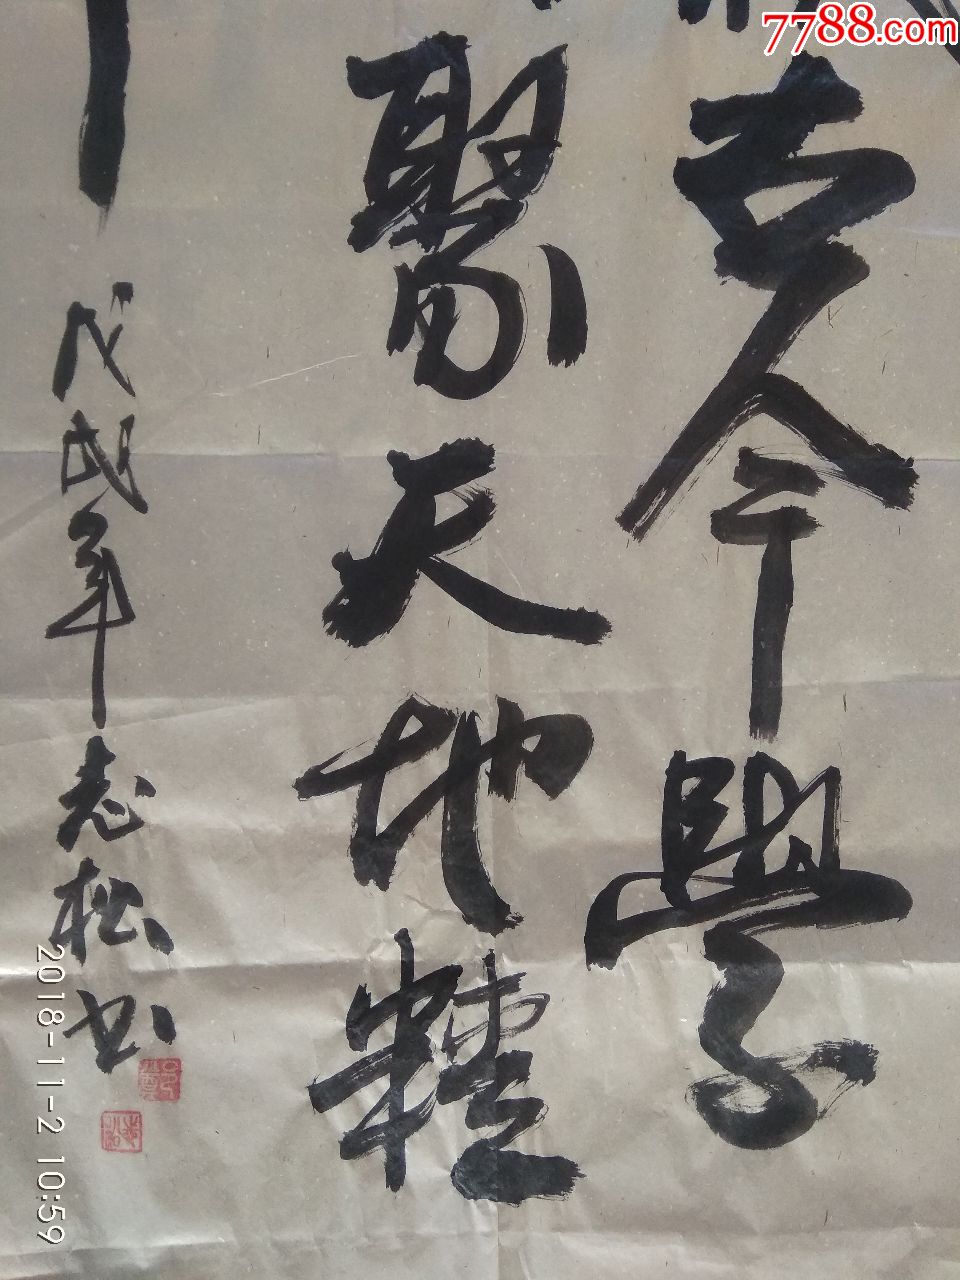 7788.com
古今學
聚天地精
戊戌年志松书
2018-11-2 10:59